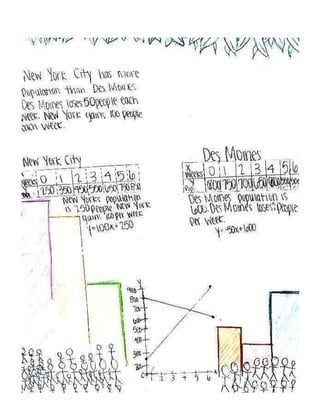 New York City has more
Population than Des Moines.
Des Moines loses 50 people each
week. New York gains 100 people
each week.
New York City
X Weeks 0 1 2 3 4 5 6
250 350 450 550 650 750 850
New Yorks population
is 250 people New York
gains 100 per week
y=100x+250
Des Moines
X Weeks 0 1 2 3 4 5 6
Y 800 750 700 650 600
Des Moines population is
600. Des Moines loses people
Per week.
y=-50x+600
Y
1 2 3 4 5 6